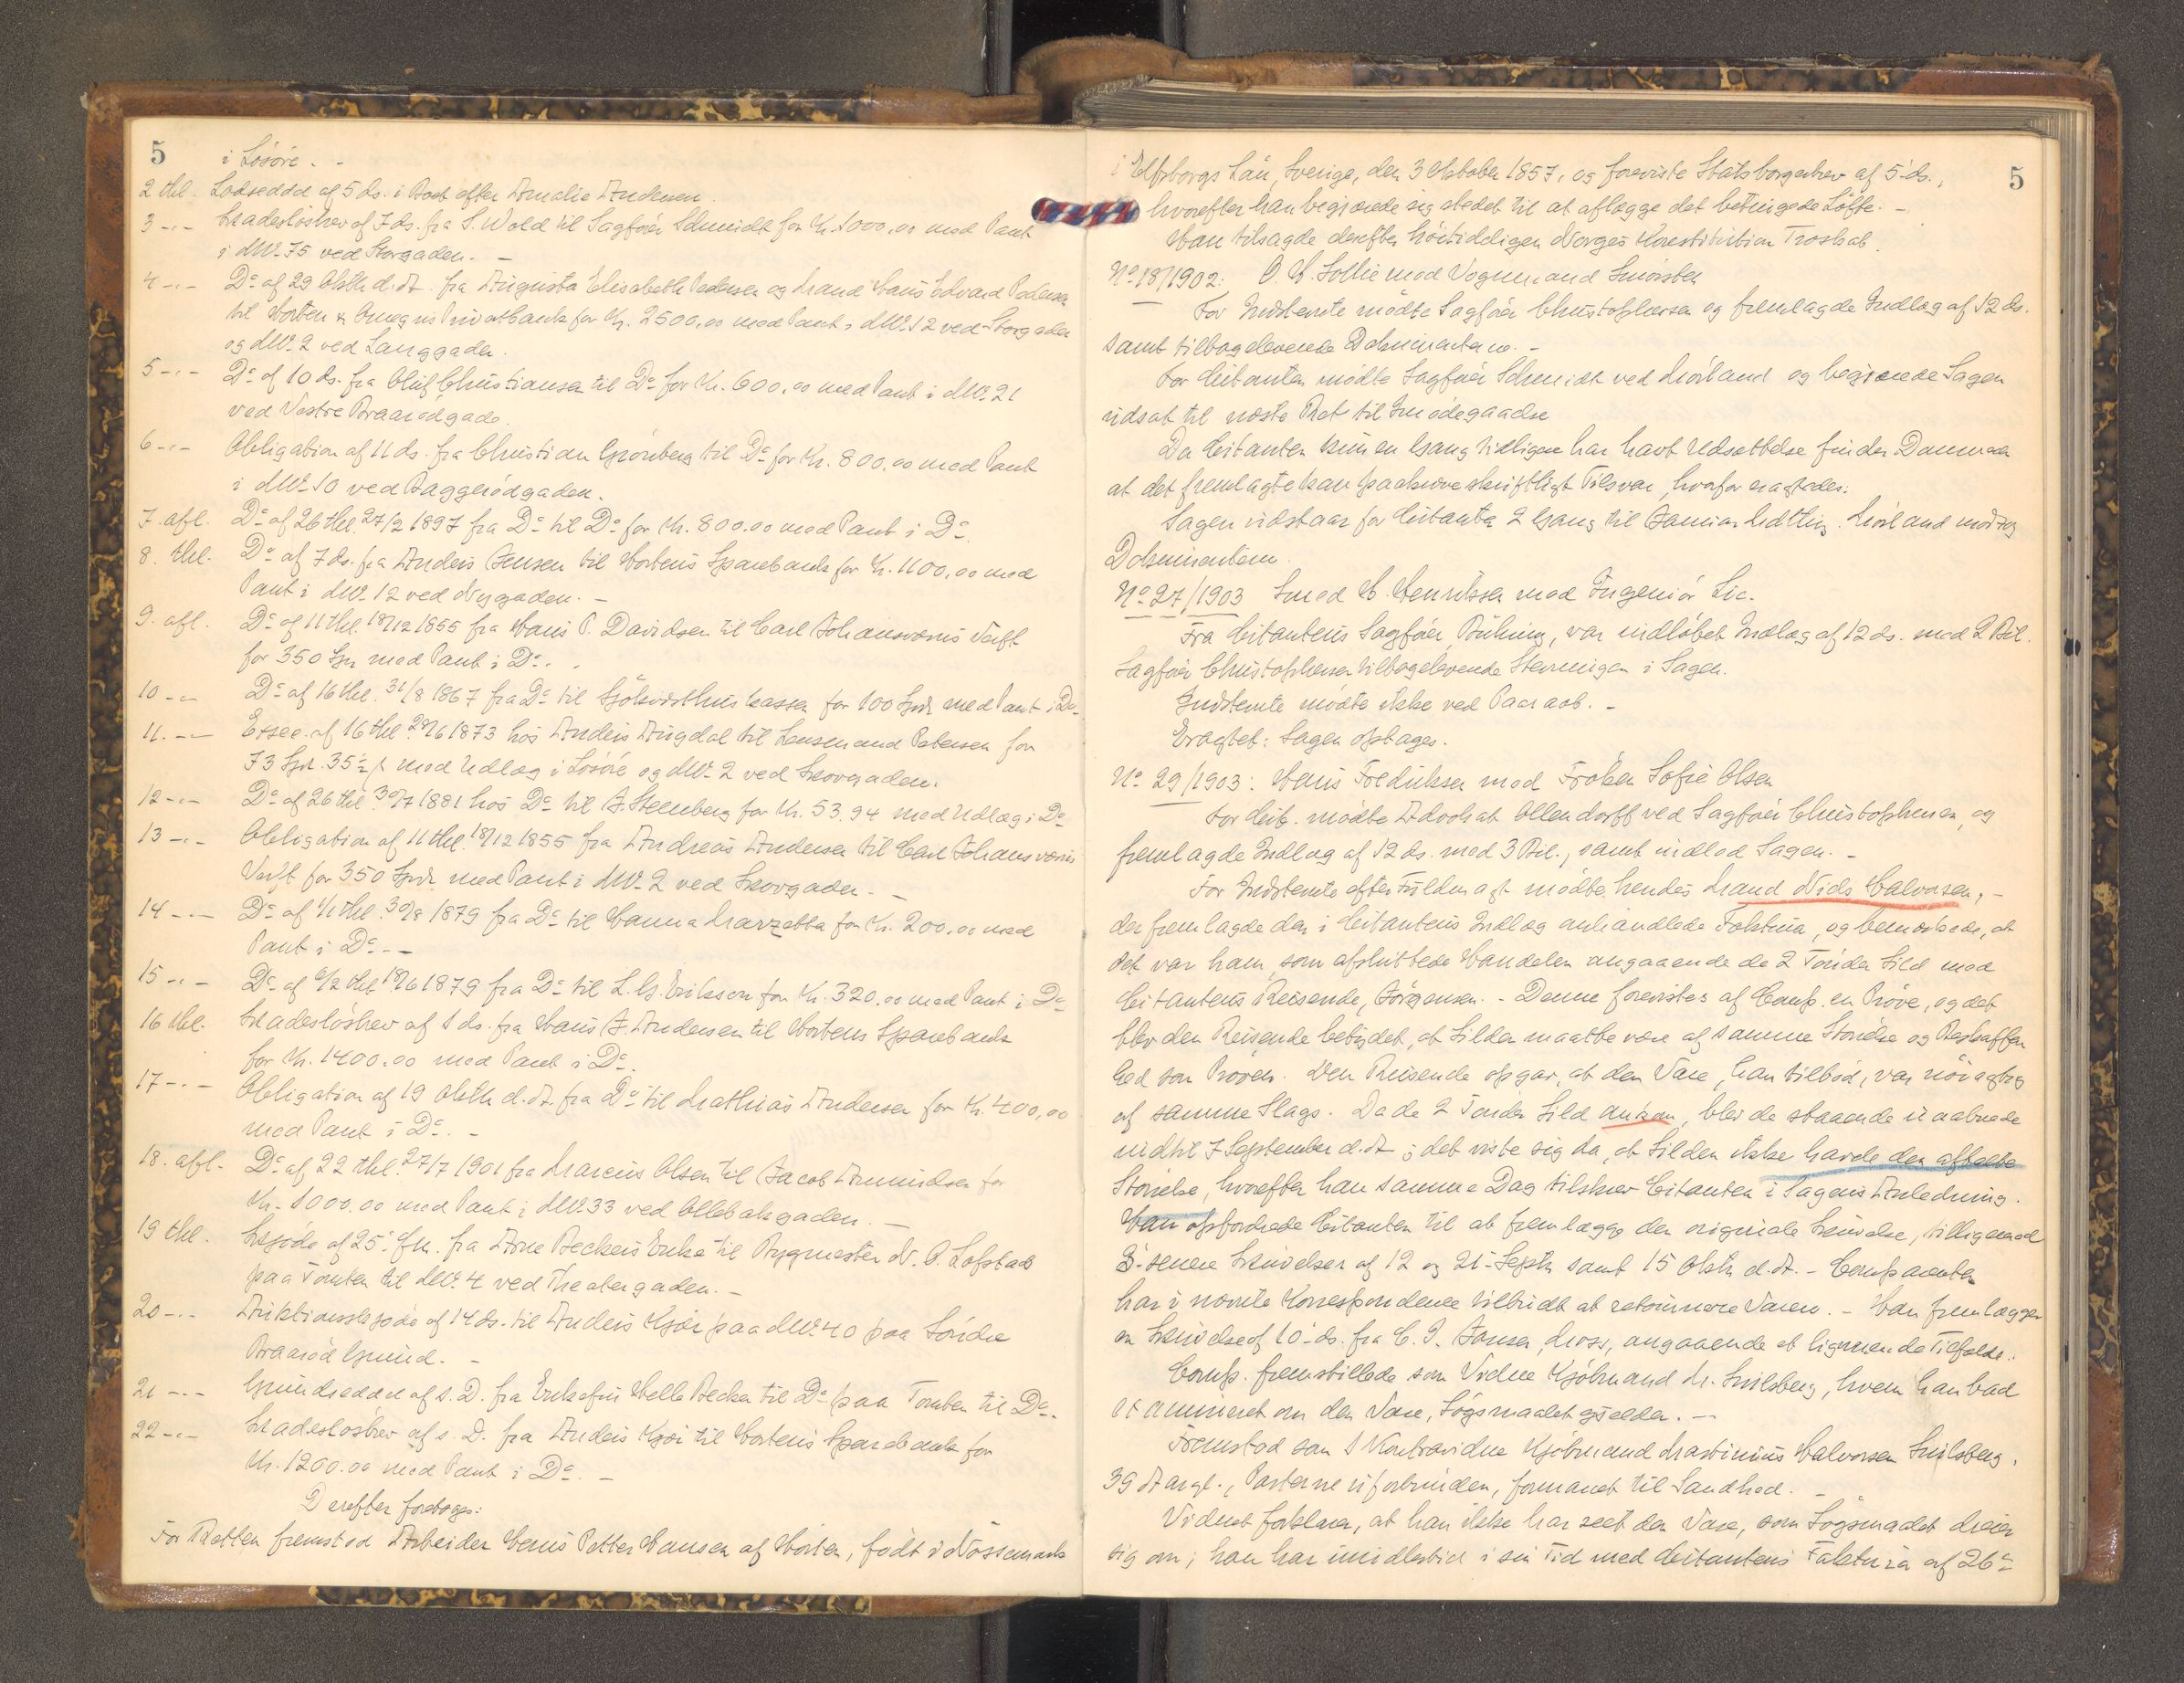 5
i Løsøre. -
2 thl. Lodseddel af 5 ds. i Boet efter Amalie Andersen.
3 -"- Skadesløsbrev af 7 ds. fra S. Wold til Sagfører Schmidt for Kr. 1000,00 med Pant
i M.No. 75 ved Storgaden. -
4 -"- Do af 29 Oktbr d.A. fra Augusta Elisabeth Pedersen og Mand Hans Edvard Pedersen
til Horten & Omegns Privatbank for Kr. 2500,00 med Pant i M.No. 12 ved Storgaden
og M.No. 2 ved Langgaden.
5 -"- Do af 10 ds. fra Oluf Christiansen til Do for Kr. 600,00 med Pant i M.No. 21
ved Vestre Braarødgade.
6 -"- Obligation af 11 ds. fra Christian Grønberg til Do for Kr. 800,00 med Pant
i M.No. 10 ved Baggerødgaden.
7. afl. Do af 26 thl. 27/2 1897 fra Do til Do for Kr. 800.00 med Pant i Do.
8. thl. Do af 7 ds. fra Anders Jensen til Hortens Sparebank for Kr. 1100,00 med
Pant i M.No. 12 ved Nygaden. -
9. afl. Do af 11 thl. 18/12 1855 fra Hans P. Davidsen til Carl Johansværns Værft
for 350 Spd med Pant i Do. -
10 -"- Do af 16 thl. 31/8 1867 fra Do til Sjøkrigsthuskassen for 100 Spd. med Pant i Do.
11. -"- Exsec. af 16 thl. 20/6 1873 hos Anders Augdal til Lensmand Petersen for
73 Spd. 35½ ß med Udlæg i Løsøre og M.No. 2 ved Skovgaden.
12 -"- Do af 26 thl. 30/7 1881 hos Do til A. Steenberg for Kr. 53,94 med Udlæg i Do
13 -"- Obligation af 11 thl. 18/12 1855 fra Andreas Andersen til Carl Johansværns
Værft for 350 Spd med Pant i M.No. 2 ved Skovgaden. -
14 -"- Do af 1/1 thl. 30/8 1879 fra Do til Hanna Marzetta for Kr. 200,00 med
Pant i Do. -
15 -"- Do af 6/2 thl. 18/6 1879 fra Do til L. G. Erikson for Kr. 320,00 med Pant i Do
16 thl. Skadesløsbrev af 1 ds. fra Hans A. Andersen til Hortens Sparebank
for Kr. 1400.00 med Pant i Do.
17 -"- Obligation af 19 Oktbr d.A. fra Do til Mathias Andersen for Kr. 400,00
med Pant i Do. -
18. afl. Do af 22 thl. 27/7 1901 fra Marcus Olsen til Jacob Amundsen for
Kr. 1000.00 med Pant i M.No. 33 ved Ollebakgaden. -
19 thl. Skjøde af 25 fm. fra Arne Beckers Enke til Bygmester N. O. Lofstad
paa Tomten til M.No. 4 ved Theatergaden. -
20 -"- Auktionsskjøde af 14 ds. til Anders Kjær paa M.No. 40 paa Søndre
Braarød Grund. -
21 -"- Grundseddel af s. D. fra Enkefru Helle Becker til Do paa Tomten til Do.
22 -"- Skadesløsbrev af s. D. fra Anders Kjær til Hortens Sparebank for
Kr. 1200.00 med Pant i Do. -
Derefter foretoges:
For Retten fremstod Arbeider Hans Petter Hansen af Horten, født i Nössemark
5
i Elfsborgs Län, Sverige, den 3 Oktober 1857, og foreviste Statsborgerbrev af 5 ds.,
hvorefter han begjærede sig stedet til at aflægge det betingede Løfte. -
Han tilsagde derefter høitideligen Norges Konstitution Troskab.
No. 18/1902: O. H. Sollie mod Vognmand Smørsten
For Indstevnte mødte Sagfører Christophersen og fremlagde Indlæg af 12 ds.
samt tilbageleverede Dokumenterne. -
For Citanten mødte Sagfører Schmidt ved Mørland og begjærede Sagen
udsat til næste Ret til Imødegaaelse
Da Citanten kun en Gang tidligere har havt Udsættelse finder Dommeren
at det fremlagte kan paakræve skriftligt Tilsvar, hvorfor eragtedes:
Sagen udstaar for Citanten 2 Gang til Januar Mdtthg. Mørland modtog
Dokumenterne.
No. 27/1903 Smed H. Henriksen mod Ingeniør Lie.
Fra Citantens Sagfører, Bühring, var indløbet Indlæg af 12 ds. med 2 Bil.
Sagfører Christophersen tilbageleverede Stevningen i Sagen.
Indstevnte mødte ikke ved Paaraab. -
Eragtet: Sagen optages.
No. 29/1903: Hans Fredriksen mod Frøken Sofie Olsen
For Cit. mødte Advokat Ollendorff ved Sagfører Christophersen, og
fremlagde Indlæg af 12 ds. med 3 Bil., samt indlod Sagen. -
For Indstevnte efter Fuldmagt mødte hendes Mand Nils Halvorsen, -
der fremlagde den i Citantens Indlæg omhandlede Faktura, og bemærkede, at
det var ham, som afsluttede Handelen angaaende de 2 Tønder Sild med
Citantens Reisende, Jørgensen. - Denne forevistes af Comp. en Prøve, og det
blev den Reisende betydet, at Silden maatte være af samme Størrelse og Beskaffen
hed som Prøven. Den Reisende opgav, at den Vare, han tilbød, var nøiagtig
af samme Slags. Da de 2 Tønder Sild ankom, blev de staaende uaabnede
indtil 7 September d.A. ; det viste sig da, at Silden ikke havde den aftalte
Størrelse, hvorefter han samme Dag tilskrev Citanten i Sagens Anledning.
Han opfordrede Citanten til at fremlægge den originale Skrivelse, tilligemed
3 senere Skrivelser af 12 og 21 Septr samt 15 Oktr d.A. - Comparenten
har i nævnte Korrespondence tilbudt at retournere Varen. - Han fremlægger
en Skrivelse af 10 ds. fra C. J. Jansen, Moss, angaaende et lignende Tilfælde.
Comp. fremstillede som Vidne Kjøbmand M. Smilsberg, hvem han bad
examineret om den Vare, Søgsmaalet gjælder. -
Fremstod som 1 Kontravidne Kjøbmand Martinius Halvorsen Smilsberg,
39 Aar gl., Parterne uforbunden, formanet til Sandhed. -
Vidnet forklarer, at han ikke har seet den Vare, som Søgsmaalet dreier
sig om; han har imidlertid i sin Tid med Citantens Faktura af 26